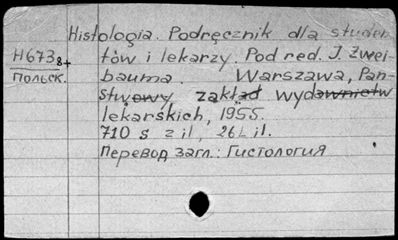 Histologia. Podręcznik dla studen
H673 8+ tów i lekarzy. Pod red. J. Zwei-
польск. bauma. Warszawa, Pań-
stwowy zakład wydawnictw
lekarskich, 1955.
710 s z il, 26 L il.
Перевод загл.: Гистология